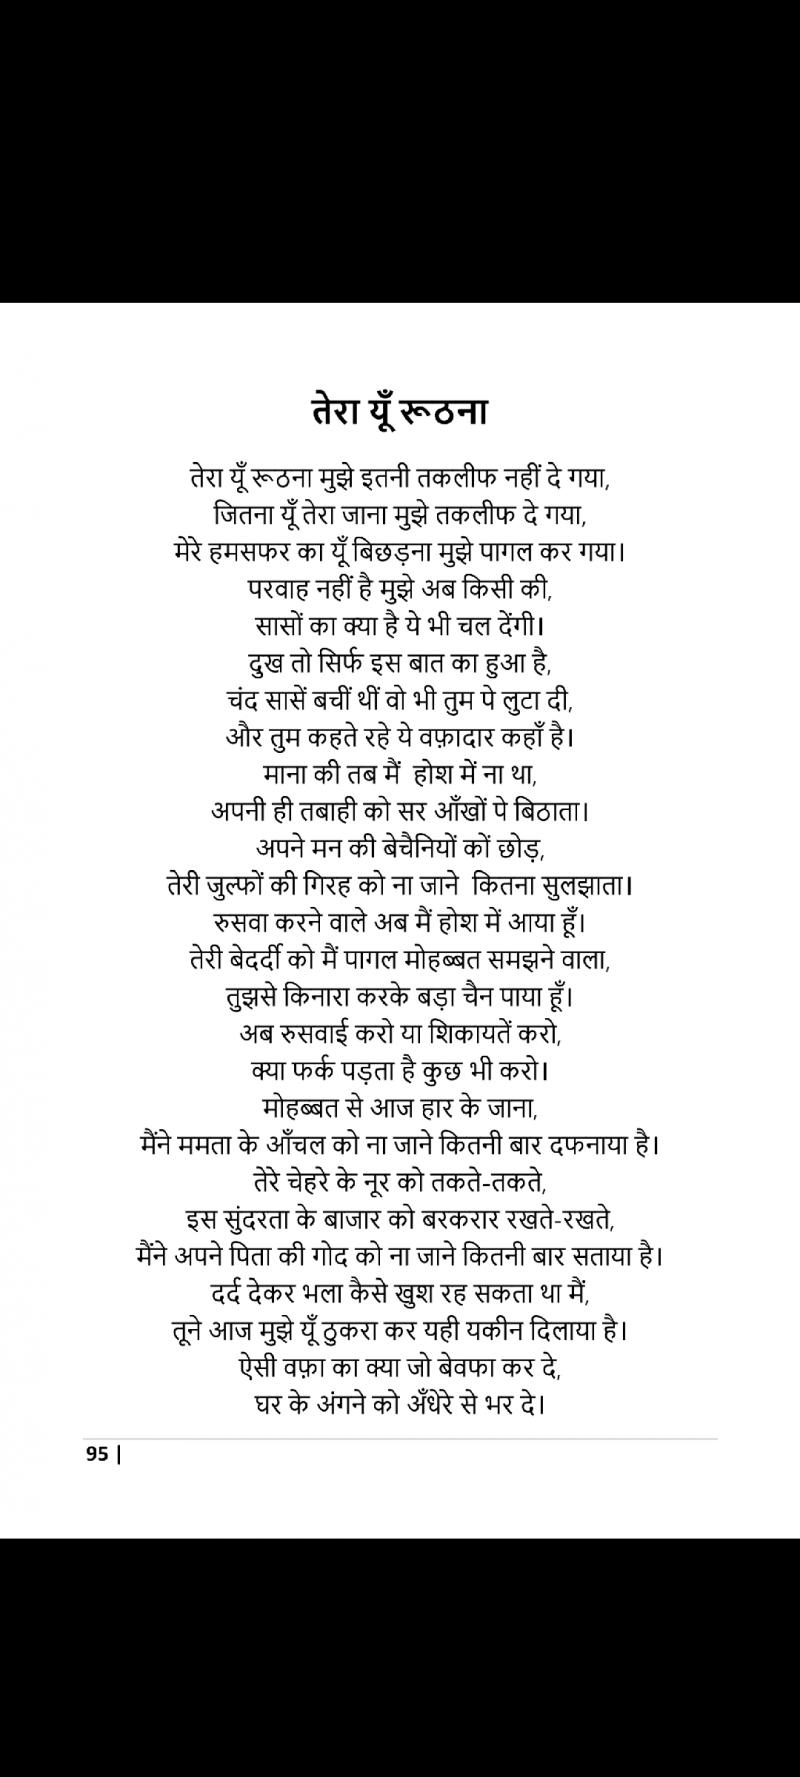 तेरा यूँ रूठना
तेरा यूँ रूठना मुझे इतनी तकलीफ नहीं दे गया,
जितना यूँ तेरा जाना मुझे तकलीफ दे गया,
मेरे हमसफर का यूँ बिछड़ना मुझे पागल कर गया।
परवाह नहीं है मुझे अब किसी की,
सासों का क्या है ये भी चल देंगी।
दुख तो सिर्फ इस बात का हुआ है,
चंद सासें बचीं थीं वो भी तुम पे लुटा दी,
और तुम कहते रहे ये वफ़ादार कहाँ है।
माना की तब मैं  होश में ना था,
अपनी ही तबाही को सर आँखों पे बिठाता।
अपने मन की बेचैनियों कों छोड़,
तेरी जुल्फों की गिरह को ना जाने  कितना सुलझाता।
रुसवा करने वाले अब मैं होश में आया हूँ।
तेरी बेदर्दी को मैं पागल मोहब्बत समझने वाला,
तुझसे किनारा करके बड़ा चैन पाया हूँ।
अब रुसवाई करो या शिकायतें करो,
क्या फर्क पड़ता है कुछ भी करो।
मोहब्बत से आज हार के जाना,
मैंने ममता के आँचल को ना जाने कितनी बार दफनाया है।
तेरे चेहरे के नूर को तकते-तकते,
इस सुंदरता के बाजार को बरकरार रखते-रखते,
मैंने अपने पिता की गोद को ना जाने कितनी बार सताया है।
दर्द देकर भला कैसे खुश रह सकता था मैं,
तूने आज मुझे यूँ ठुकरा कर यही यकीन दिलाया है।
ऐसी वफ़ा का क्या जो बेवफा कर दे,
घर के अंगने को अँधेरे से भर दे।
95 |